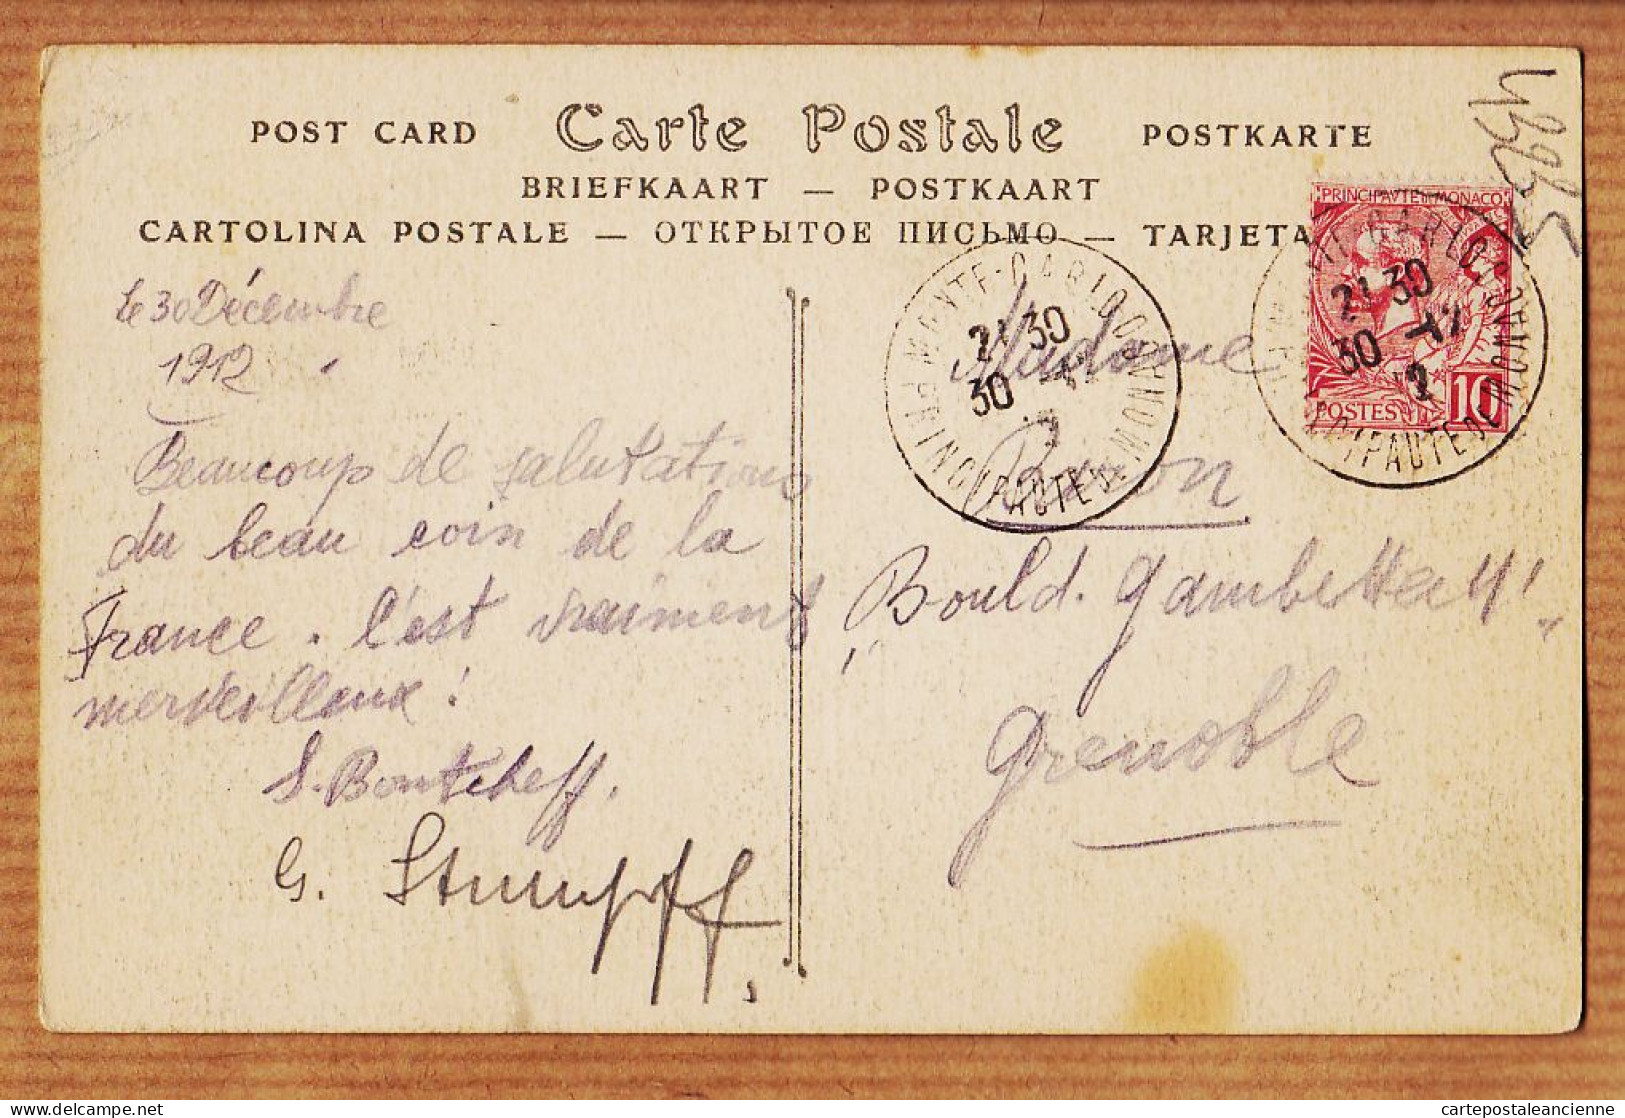 POST CARD Carte Postale POSTKARTE
BRIEFKAART — POSTKAART
CARTOLINA POSTALE — ОТКРЫТОЕ ПИСЬМО — TARJETA
PRINCIPAVTE DE MONACO
POSTES 10
MONTE-CARLO
PRINCIPAUTE DE MONACO
21 30
30 -12
MONTE-CARLO
PRINCIPAUTE DE MONACO
21 30
30 -12
12
le 30 Décembre
1912
Beaucoup de salutations
du beau coin de la
France. C'est vraiment
merveilleux!
S. Bontcheff.
G. Stumpff
Madame
Baron
Bould. Gambetta
Grenoble
cartepostaleancienne